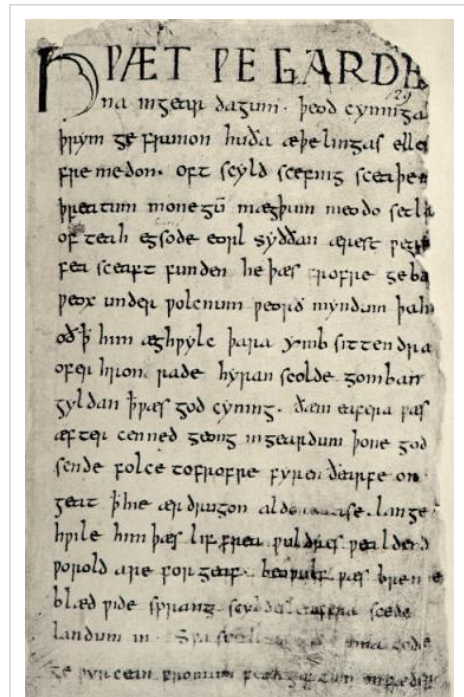 HǷÆT ǷE GARDE
29
na ingear dagum. þeod cyninga
þrym ge frunon huða æþelingas elle
fre medon. oft scyld scefing sceaþe
þreatum monegū mægþum meodo setla
of teah egsode eorl syððan ærest
fea sceaft funden he þæs frofre geba
ƿeox under ƿolcnum ƿeorð myndum þah
oð ꝥ him æghƿylc þara ymb sittendra
ofer hron rade hyran scolde gomban
gyldan ꝥ ƿæs god cyning. ðæm eafera ƿæs
æfter cenned geong ingeardum þone god
sende folce tofrofre fyren ðearfe on
geat ꝥ hie ær drugon lange
hƿile him þæs lif frea ƿuldres ƿealdend
ƿorold are for geaf. beoƿulf ƿæs breme
blæd ƿide sprang scyldes eafera scede
landum in. Sƿa gode
ge ƿyrcean fromum